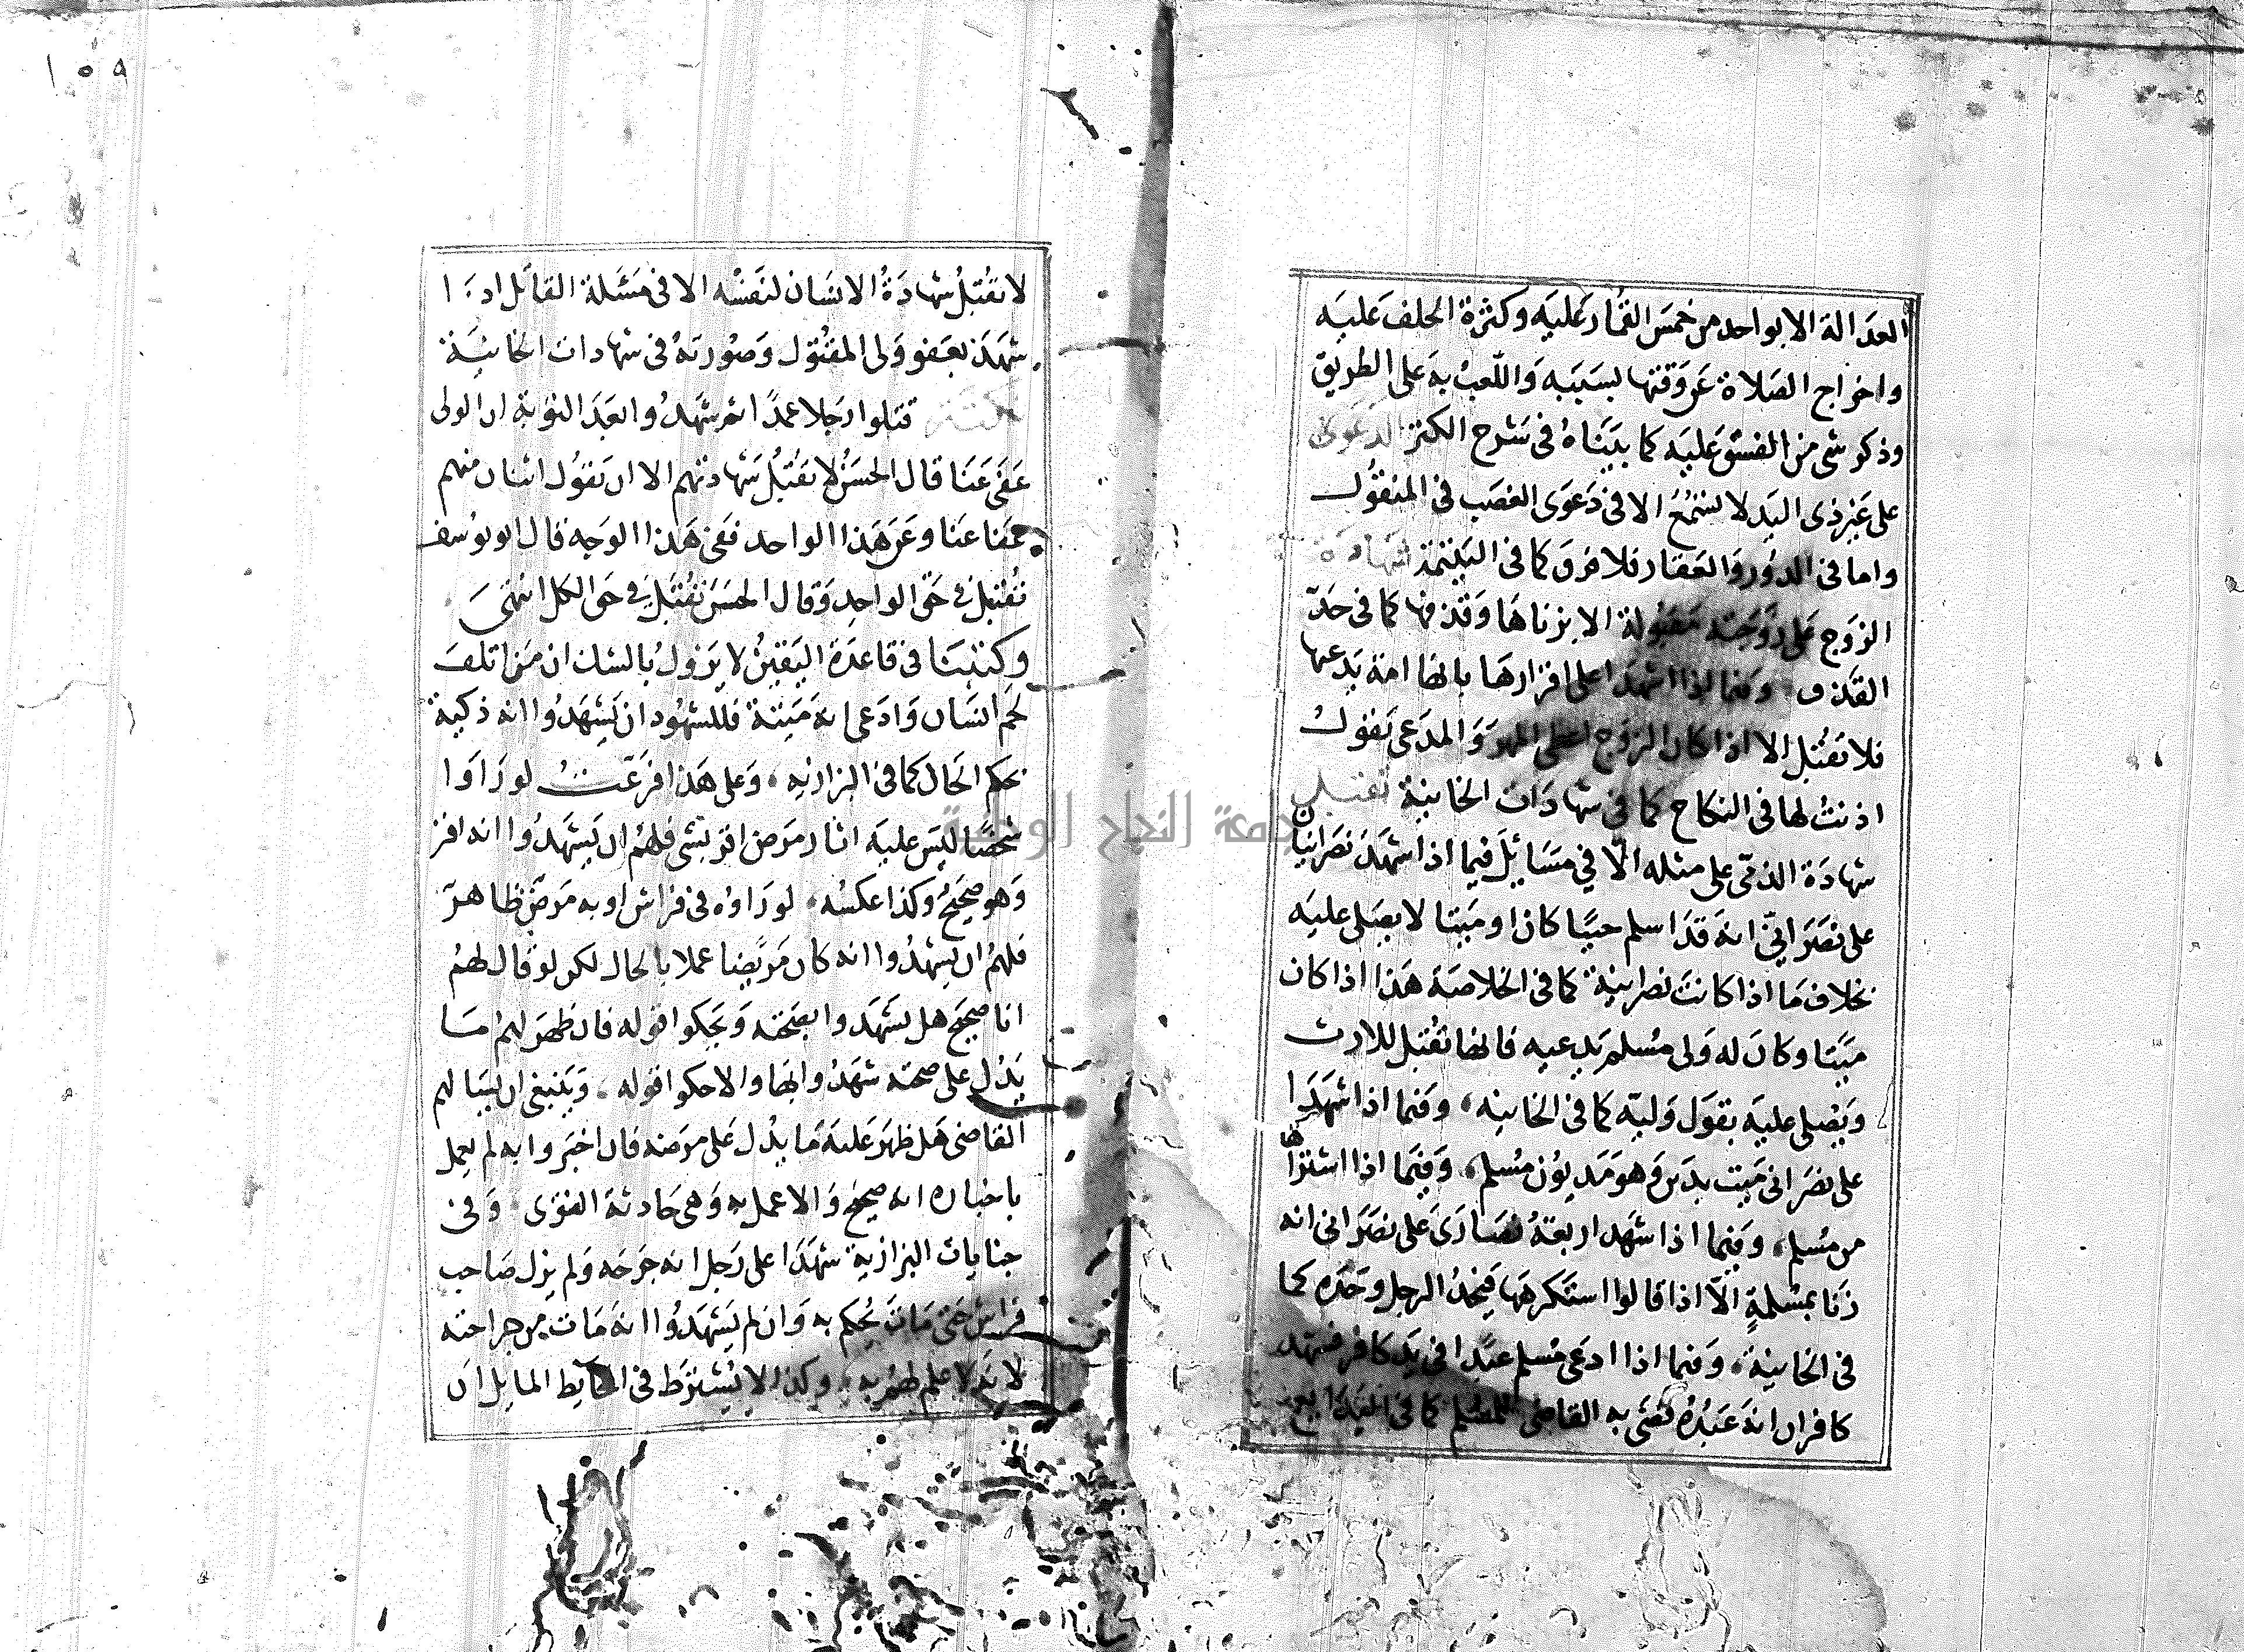 العدالة الا بواحد من خمس القمار عليه وكثرة الحلف عليه
واخراج الصلاة عن وقتها بسببه واللعب به على الطريق
وذكر شى من الفسق عليه كما بيناه فى شرح الكنز الدعوى
على غير ذى اليد لا تسمع الا فى دعوى الغصب فى المنقول
واما فى الدور والعقار فلا فرق كما فى اليتيمة شهادة
الزوج على زوجته مقبولة الا بزناها وقذفها كما فى حد
القذف وفيما اذا شهد على اقرارها بانها امة يدعيها
فلا تقبل الا اذا كان الزوج اعطى المهر والمدعى يقول
اذنت لها فى النكاح كما فى شهادات الخانية تقبل
شهادة الذمى على مثله الا في مسايل فيما اذا شهد نصرانيان
على نصرانى انه قد اسلم حيا كان او ميتا لا يصلى عليه
بخلاف ما اذا كانت نصرانية كما فى الخلاصة هذا اذا كان
ميتا وكان له ولى مسلم يدعيه فانها تقبل للارث
ويصلى عليه بقول وليه كما فى الخانيه وفيما اذا شهدا
على نصرانى ميت بدين وهو مديون مسلم وفيما اذا اشتراها
من مسلم وفيما اذا شهد اربعة نصارى على نصرانى انه
زنا بمسلمة الا اذا قالوا استكرهها فيحد الرجل وحده كما
فى الخانية وفيما اذا ادعى مسلم عبدا فى يد كافر فشهد
كافران انه عبده قضى به القاضى للمسلم كما فى البدايع
١٥٩
لا تقبل شهادة الانسان لنفسه الا فى مسئلة القاتل اذا
شهد بعفو ولى المقتول وصورته فى شهادات الخانية
ثلثة قتلوا رجلا عمدا ثم شهدوا بعد التوبة ان الولى
عفى عنا قال الحسن لا تقبل شهادتهم الا ان يقول اثنان منهم
عفى عنا وعن هذا الواحد ففى هذا الوجه قال ابو يوسف
تقبل في حق الواحد وقال الحسن تقبل في حق الكل انتهى
وكتبنا فى قاعدة اليقين لا يزول بالشك ان من اتلف
لحم انسان وادعى انه ميتة فللشهود ان يشهدوا انه ذكية
بحكم الحال كما فى البزازيه وعلى هذا فرعت لو راوا
شخصا ليس عليه اثار مرض اقر بشى فلهم ان يشهدوا انه اقر
وهو صحيح وكذا عكسه لو راوه فى فراش او به مرض ظاهر
فلهم ان يشهدوا انه كان مريضا عملا بالحال لكن لو قال لهم
انا صحيح هل يشهدوا بصحته ويحكوا قوله فان ظهر لهم ما
يدل على صحته شهدوا بها والا حكوا قوله وينبغى ان يسالهم
القاضى هل ظهر عليه ما يدل على مرضه فان اخبروا به لم يعمل
باخباره انه صحيح والا عمل به وهى حادثة الفتوى وفى
جنايات البزازية شهدا على رجل انه جرحه ولم يزل صاحب
فراش حتى مات يحكم به وان لم يشهدوا انه مات من جراحته
لانه لا علم لهم به وكذا لا يشترط فى الحايط المايل ان
جامعة النجاح الوطنية